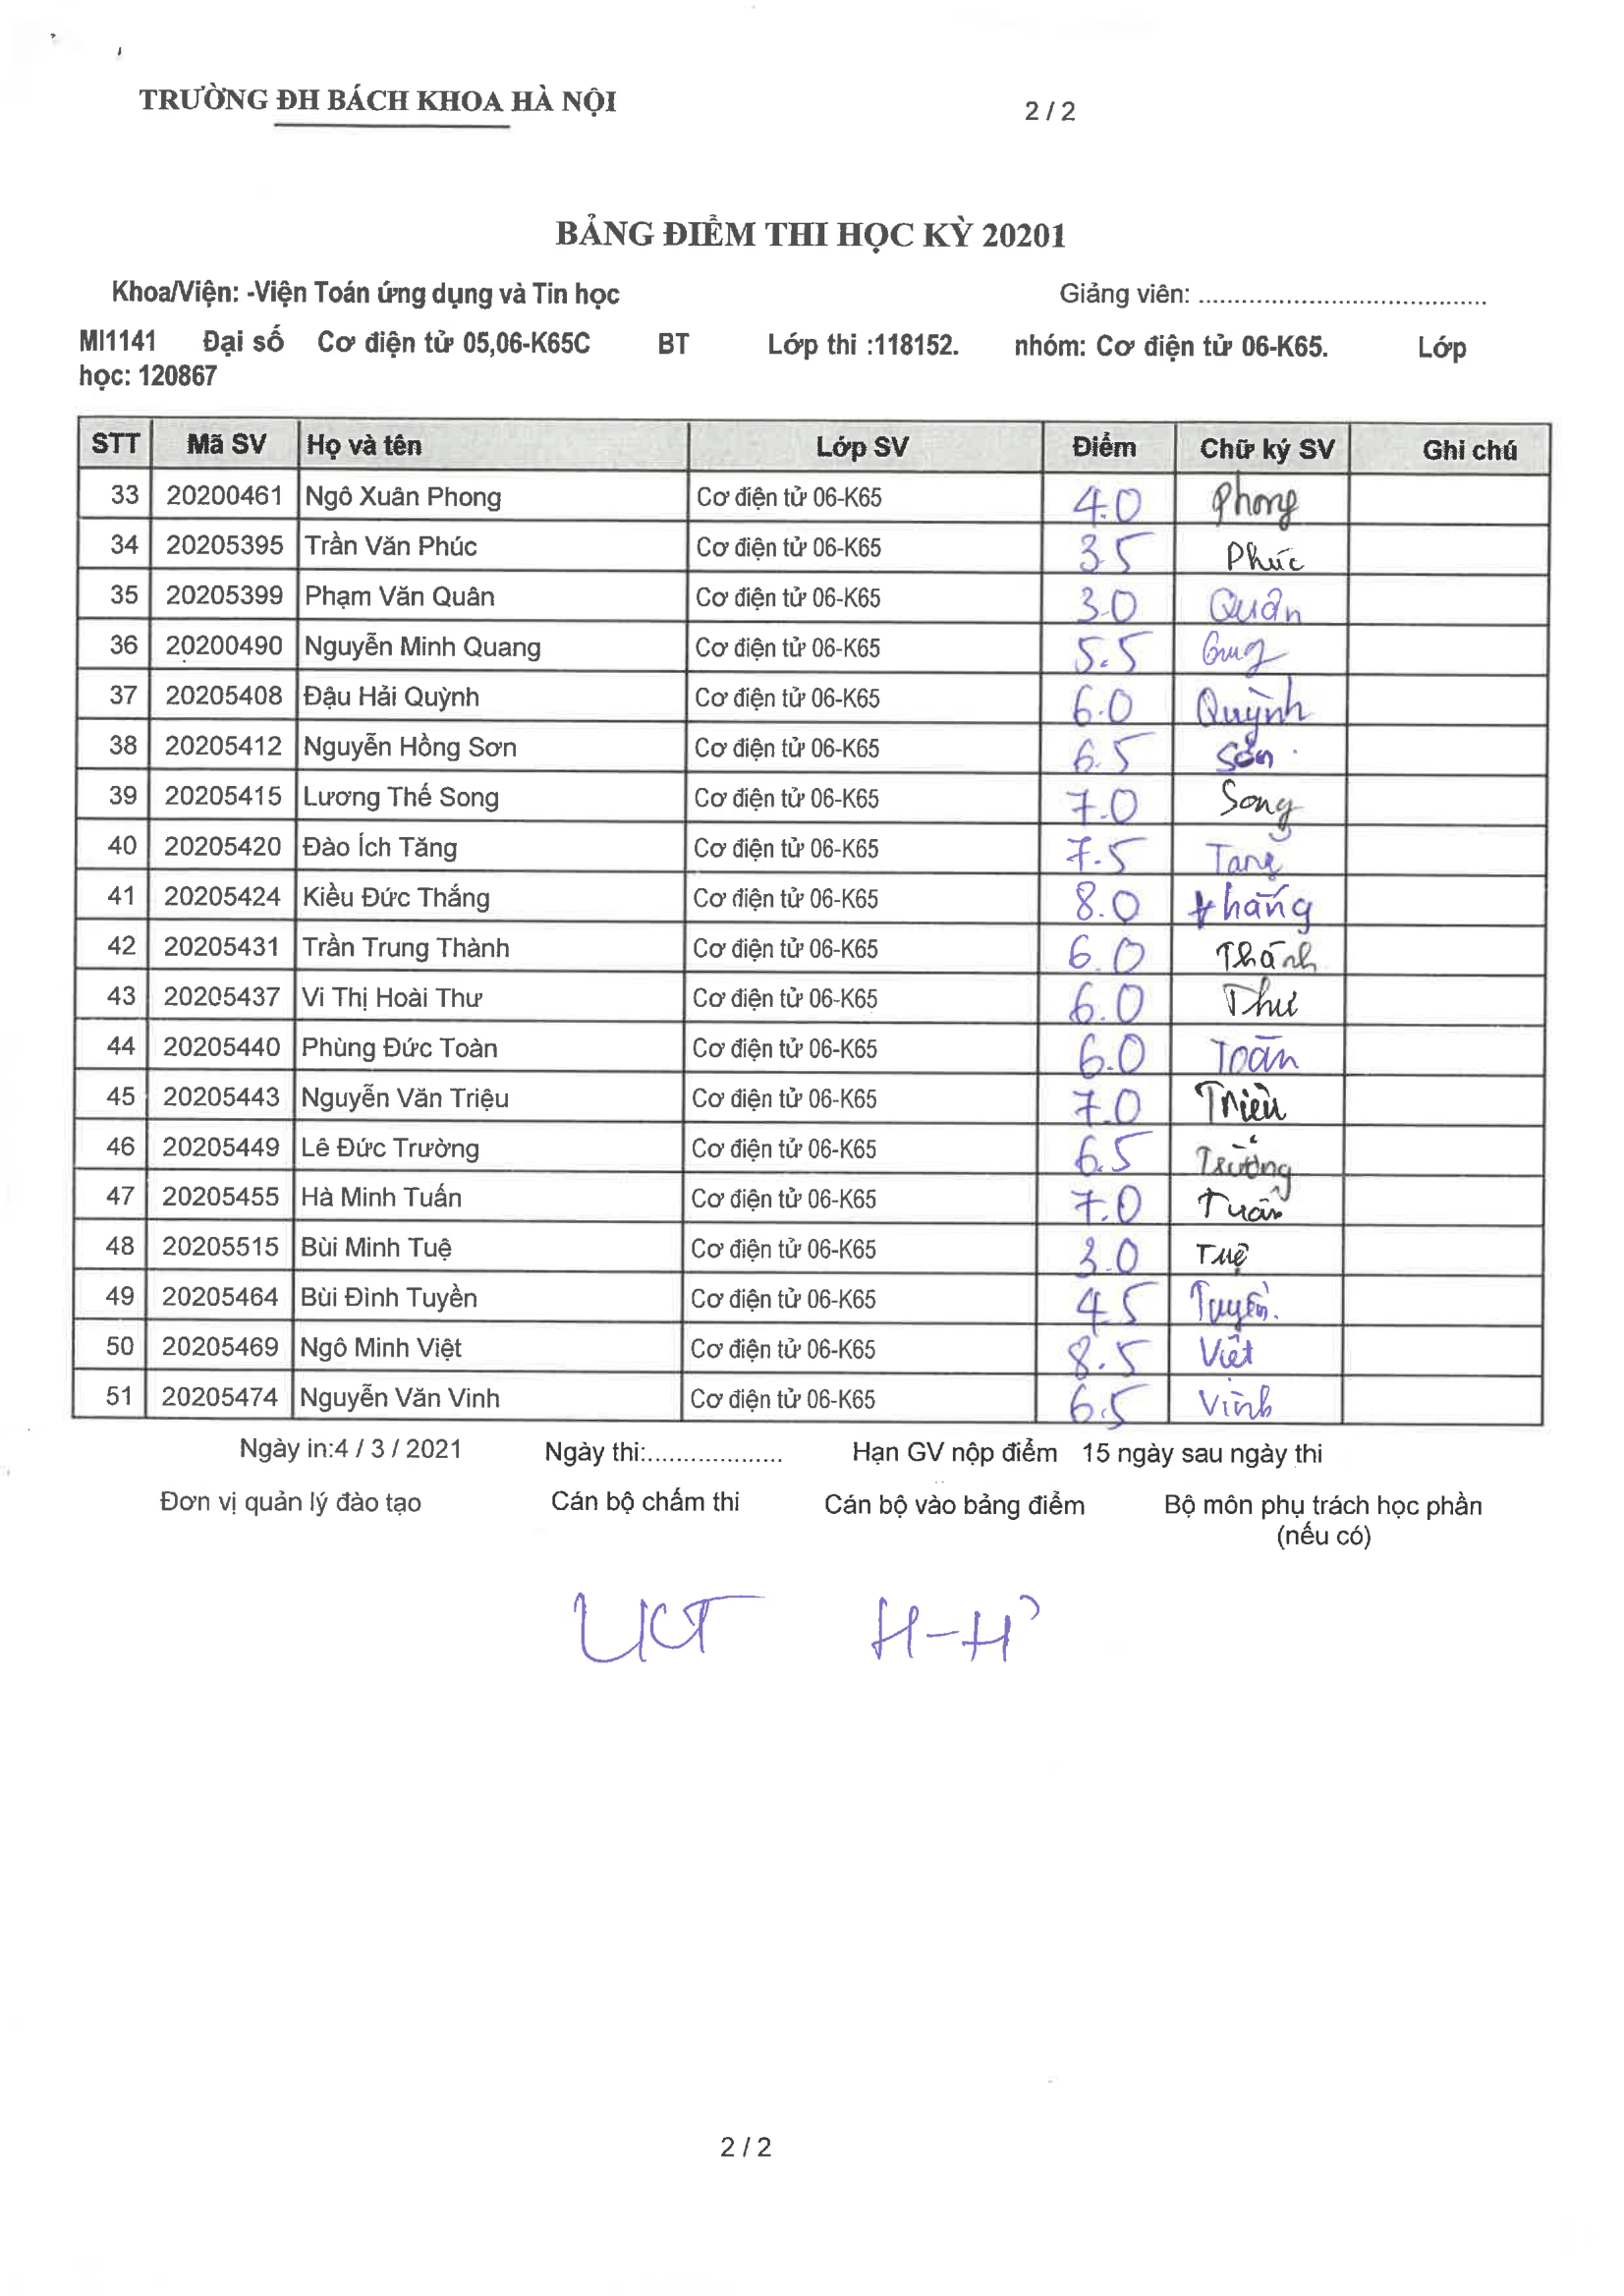 TRƯỜNG ĐH BÁCH KHOA HÀ NỘI 2 / 2
BẢNG ĐIỂM THI HỌC KỲ 20201
Khoa/Viện: -Viện Toán ứng dụng và Tin học Giảng viên: ........................................
MI1141 Đại số Cơ điện tử 05,06-K65C BT Lớp thi :118152. nhóm: Cơ điện tử 06-K65. Lớp
học: 120867
STT Mã SV Họ và tên Lớp SV Điểm Chữ ký SV Ghi chú
33 20200461 Ngô Xuân Phong Cơ điện tử 06-K65 4.0 Phong
34 20205395 Trần Văn Phúc Cơ điện tử 06-K65 3.5 Phúc
35 20205399 Phạm Văn Quân Cơ điện tử 06-K65 3.0 Quân
36 20200490 Nguyễn Minh Quang Cơ điện tử 06-K65 5.5
37 20205408 Đậu Hải Quỳnh Cơ điện tử 06-K65 6.0 Quỳnh
38 20205412 Nguyễn Hồng Sơn Cơ điện tử 06-K65 6.5 Sơn
39 20205415 Lương Thế Song Cơ điện tử 06-K65 7.0 Song
40 20205420 Đào Ích Tăng Cơ điện tử 06-K65 7.5 Tang
41 20205424 Kiều Đức Thắng Cơ điện tử 06-K65 8.0 thắng
42 20205431 Trần Trung Thành Cơ điện tử 06-K65 6.0 Thành
43 20205437 Vi Thị Hoài Thư Cơ điện tử 06-K65 6.0 Thư
44 20205440 Phùng Đức Toàn Cơ điện tử 06-K65 6.0 Toàn
45 20205443 Nguyễn Văn Triệu Cơ điện tử 06-K65 7.0 Triệu
46 20205449 Lê Đức Trường Cơ điện tử 06-K65 6.5 Trường
47 20205455 Hà Minh Tuấn Cơ điện tử 06-K65 7.0 Tuấn
48 20205515 Bùi Minh Tuệ Cơ điện tử 06-K65 3.0 Tuệ
49 20205464 Bùi Đình Tuyền Cơ điện tử 06-K65 4.5 Tuyền.
50 20205469 Ngô Minh Việt Cơ điện tử 06-K65 8.5 Việt
51 20205474 Nguyễn Văn Vinh Cơ điện tử 06-K65 6.5 Vinh
Ngày in:4 / 3 / 2021 Ngày thi:................... Hạn GV nộp điểm 15 ngày sau ngày thi
Đơn vị quản lý đào tạo Cán bộ chấm thi Cán bộ vào bảng điểm Bộ môn phụ trách học phần
(nếu có)
2 / 2